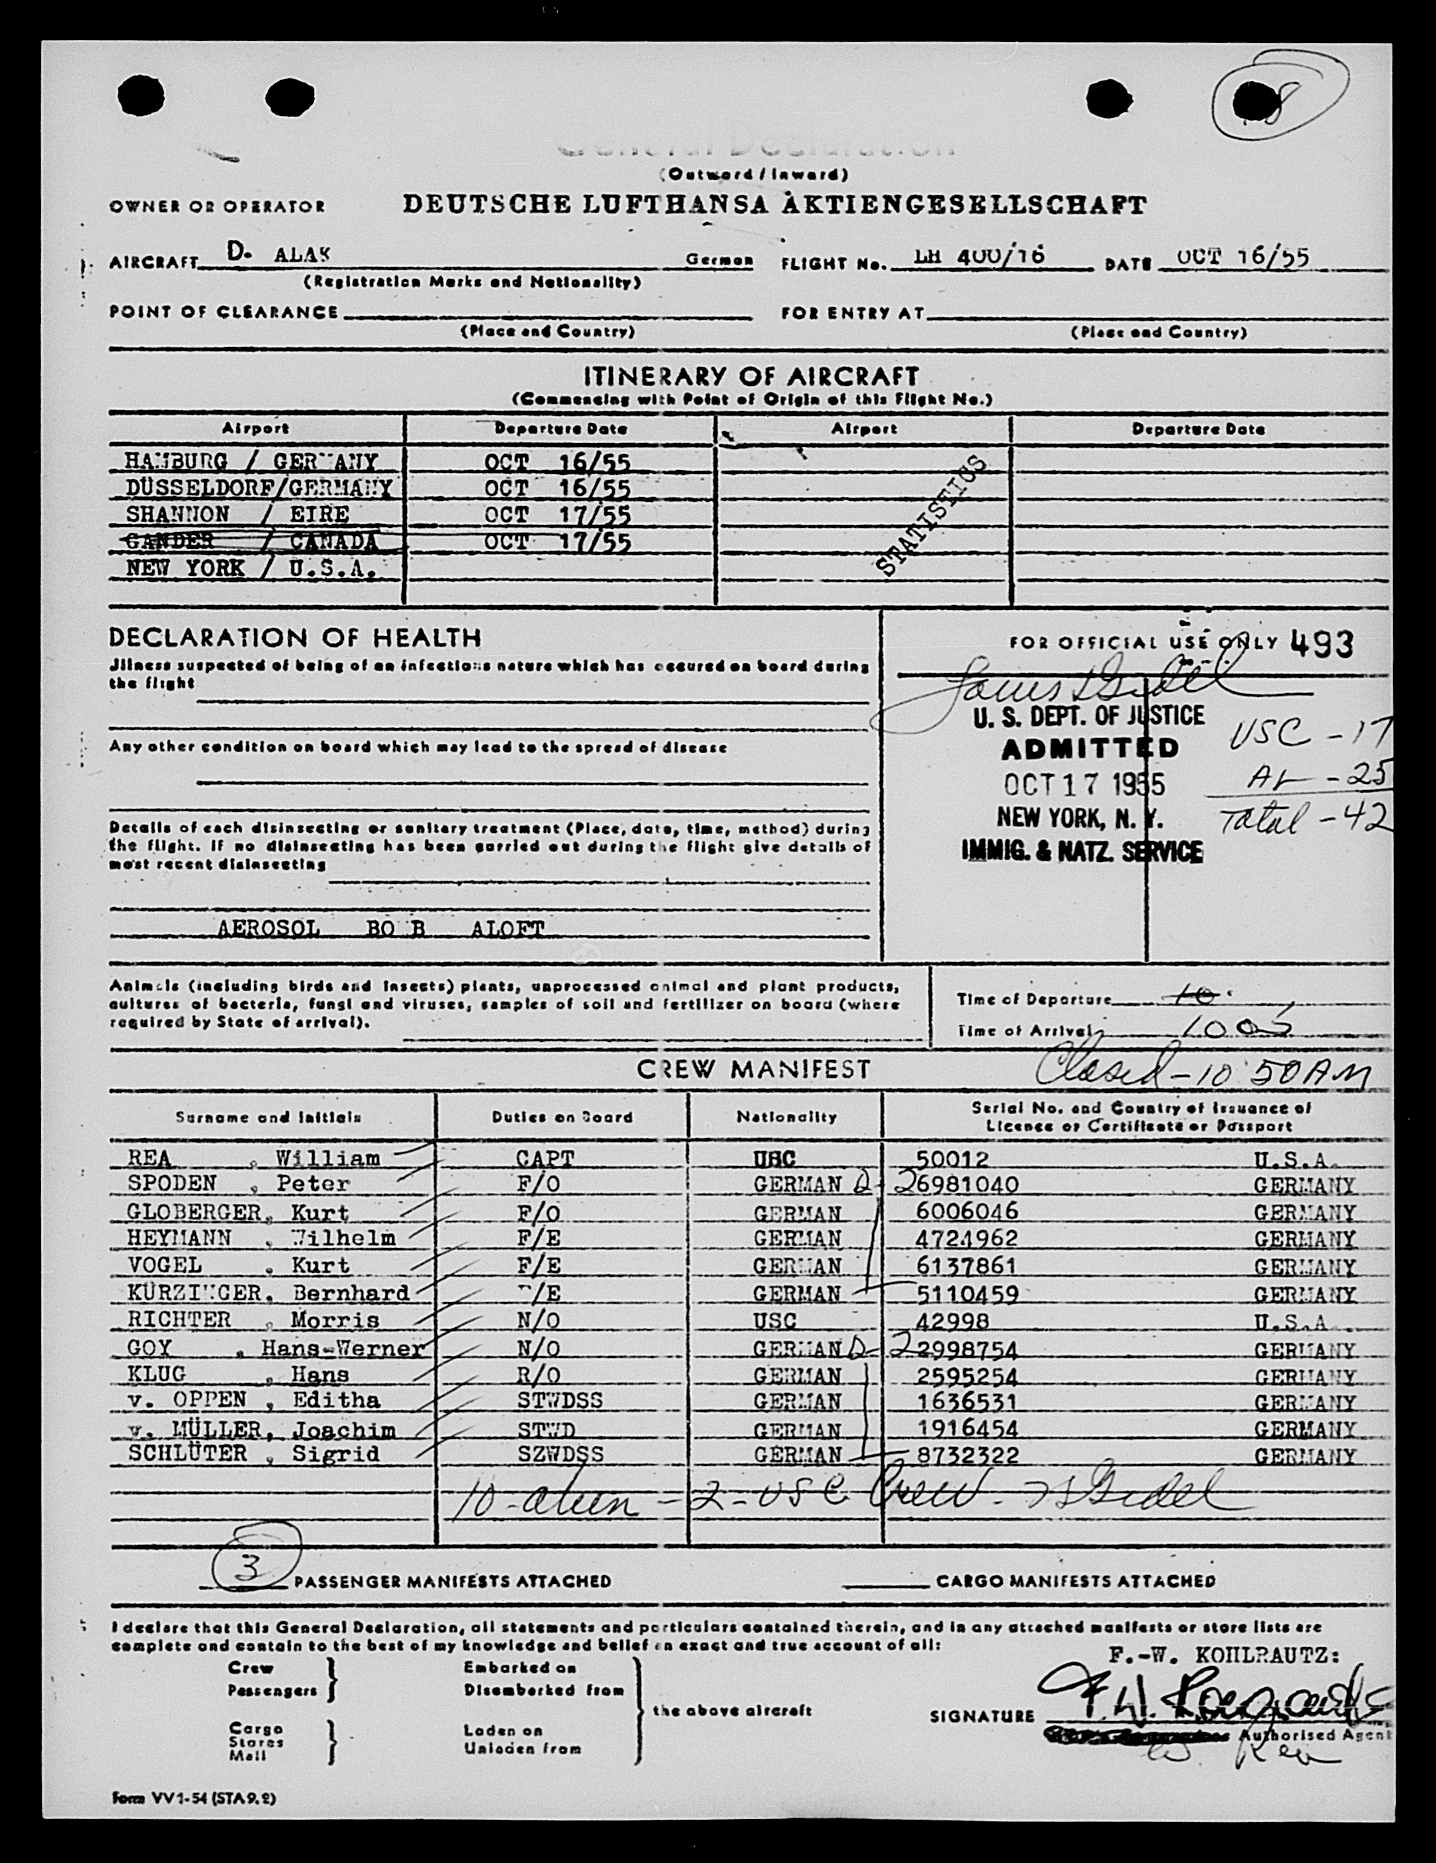 8
General Declaration
(Outward / Inward)
OWNER OR OPERATOR DEUTSCHE LUFTHANSA AKTIENGESELLSCHAFT
AIRCRAFT D. ALAK German FLIGHT No. LH 400/16 DATE OCT 16/55
(Registration Marks and Nationality)
POINT OF CLEARANCE FOR ENTRY AT
(Place and Country) (Place and Country)
ITINERARY OF AIRCRAFT
(Commencing with Point of Origin of this Flight No.)
Airport Departure Date Airport Departure Date
HAMBURG / GERMANY OCT 16/55
DÜSSELDORF/GERMANY OCT 16/55
SHANNON / EIRE OCT 17/55
GANDER / CANADA OCT 17/55
NEW YORK / U.S.A.
STATISTICS
DECLARATION OF HEALTH
Jllness suspected of being of an infectious nature which has occured on board during
the flight
Any other condition on board which may lead to the spread of disease
Details of each disinsecting or sanitary treatment (Place, date, time, method) during
the flight. If no disinsecting has been carried out during the flight give details of
most recent disinsecting
AEROSOL BO B ALOFT
FOR OFFICIAL USE ONLY 493
U. S. DEPT. OF JUSTICE
ADMITTED
OCT 17 1955
NEW YORK, N. Y.
IMMIG. & NATZ. SERVICE
USC - 17
AL - 25
Total - 42
Animals (including birds and insects) plants, unprocessed animal and plant products,
cultures of bacteria, fungi and viruses, samples of soil and fertilizer on board (where
required by State of arrival).
Time of Departure 10
Time of Arrival 1005
CREW MANIFEST
Closed - 10 50 AM
Surname and Initials Duties on Board Nationality Serial No. and Country of Issuance of
Licence or Certificate or Passport
REA , William CAPT USC 50012 U.S.A.
SPODEN , Peter F/O GERMAN D-2 6981040 GERMANY
GLOBERGER, Kurt F/O GERMAN 6006046 GERMANY
HEYMANN , Wilhelm F/E GERMAN 4724962 GERMANY
VOGEL , Kurt F/E GERMAN 6137861 GERMANY
KÜRZINGER, Bernhard F/E GERMAN 5110459 GERMANY
RICHTER , Morris N/O USC 42998 U.S.A.
GOY , Hans-Werner N/O GERMAN D-2 2998754 GERMANY
KLUG , Hans R/O GERMAN 2595254 GERMANY
v. OPPEN , Editha STWDSS GERMAN 1636531 GERMANY
v. MÜLLER, Joachim STWD GERMAN 1916454 GERMANY
SCHLÜTER , Sigrid SZWDSS GERMAN 8732322 GERMANY
10 - alien - 2 - USC Crew -
3 PASSENGER MANIFESTS ATTACHED CARGO MANIFESTS ATTACHED
I declare that this General Declaration, all statements and particulars contained therein, and in any attached manifests or store lists are
complete and contain to the best of my knowledge and belief an exact and true account of all:
F.-W. KOHLRAUTZ:
Crew Embarked on
Passengers Disembarked from
the above aircraft
Cargo Laden on
Stores Unladen from
Mail
SIGNATURE F. W. Kohlrautz
Authorised Agent
W. Rea
Form VV 1-54 (STA 9.2)